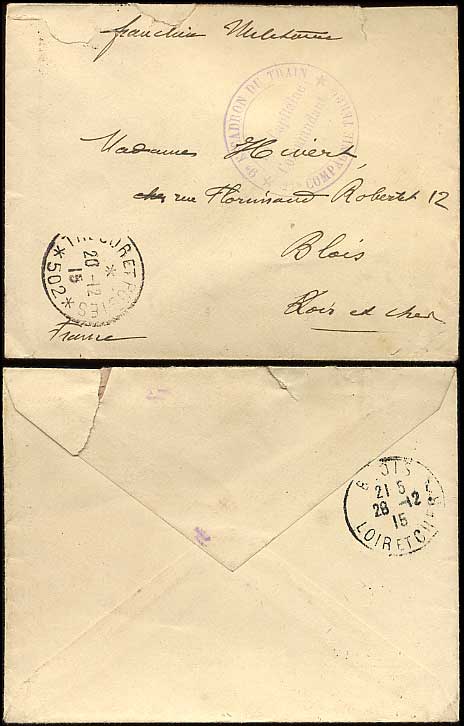 franchise Militaire
9e ESCADRON DU TRAIN
Capitaine
Commandant
COMPAGNIE
Madames Hivert,
rue Florimond Robertet 12
Blois
Loir et cher
TRESOR ET POSTES
20 -12
15
* 502 *
France
BLOIS
21 5
28 -12
15
LOIR ET CHER